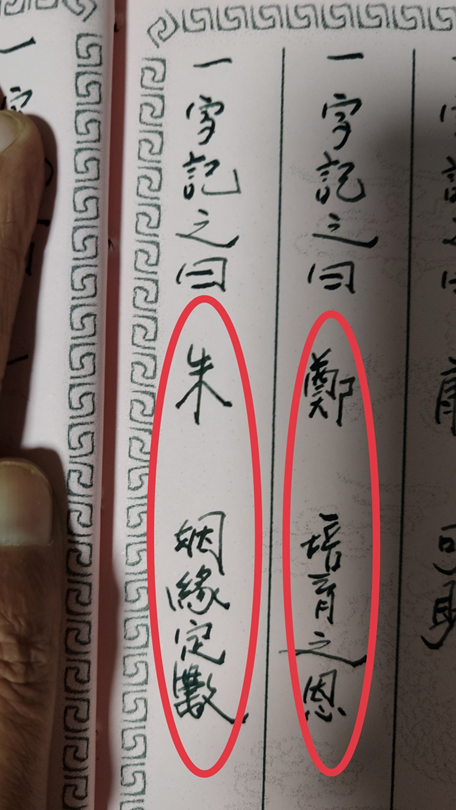 一字記之曰 鄭 培育之恩
一字記之曰 朱 姻緣定數